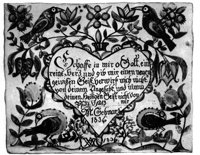 Schaffe in mir o Gott, ein
reines Herz und gib mir einen neuen
gewissen Geist, verwirf mich nicht
von deinem Angesicht und nimm
deinen heiligen Geist nicht von
mir
1834